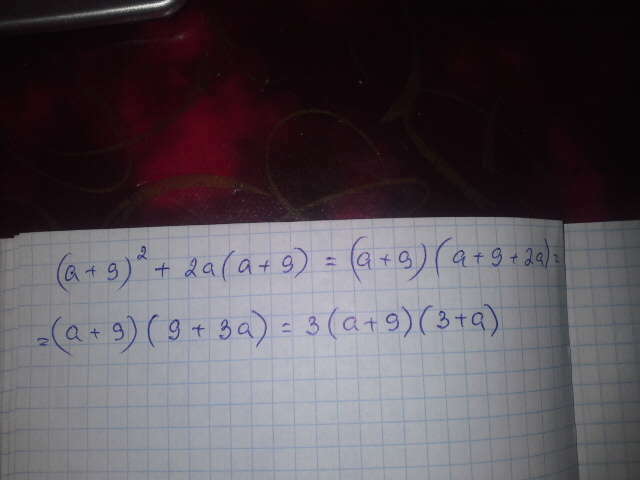 (a + 9)² + 2a(a + 9) = (a + 9)(a + 9 + 2a) =
= (a + 9)(9 + 3a) = 3(a + 9)(3 + a)